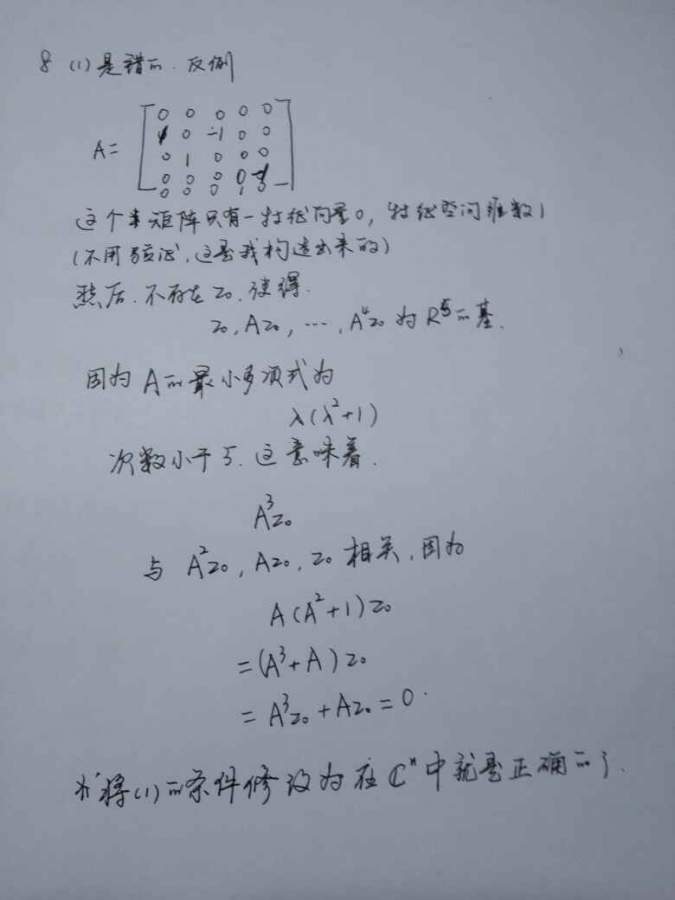 8 (1)是错的.反例
A= [ 0 0 0 0 0
0 -1 0 0
0 1 0 0 0
0 0 0 0 -1
0 0 0 1 0 ]
这个 矩阵只有一特征向量0,特征空间维数1
(不用验证,这是我构造出来的)
然后.不存在z₀.使得.
z₀, Az₀, ⋯, A⁴z₀ 为 R⁵的基.
因为 A的最小多项式为
λ(λ²+1)
次数小于5.这意味着.
A³z₀
与 A²z₀, Az₀, z₀ 相关,因为
A(A²+1)z₀
=(A³+A)z₀
= A³z₀+Az₀=0.
将(1)的条件修改为在 ℂⁿ中就是正确的了.